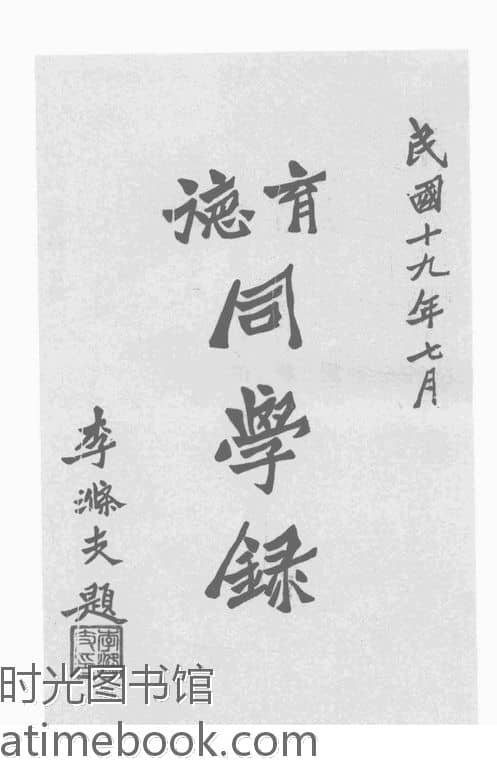 民國十九年七月
育德
同
學
録
李滌支題
时光图书馆
atimebook.com